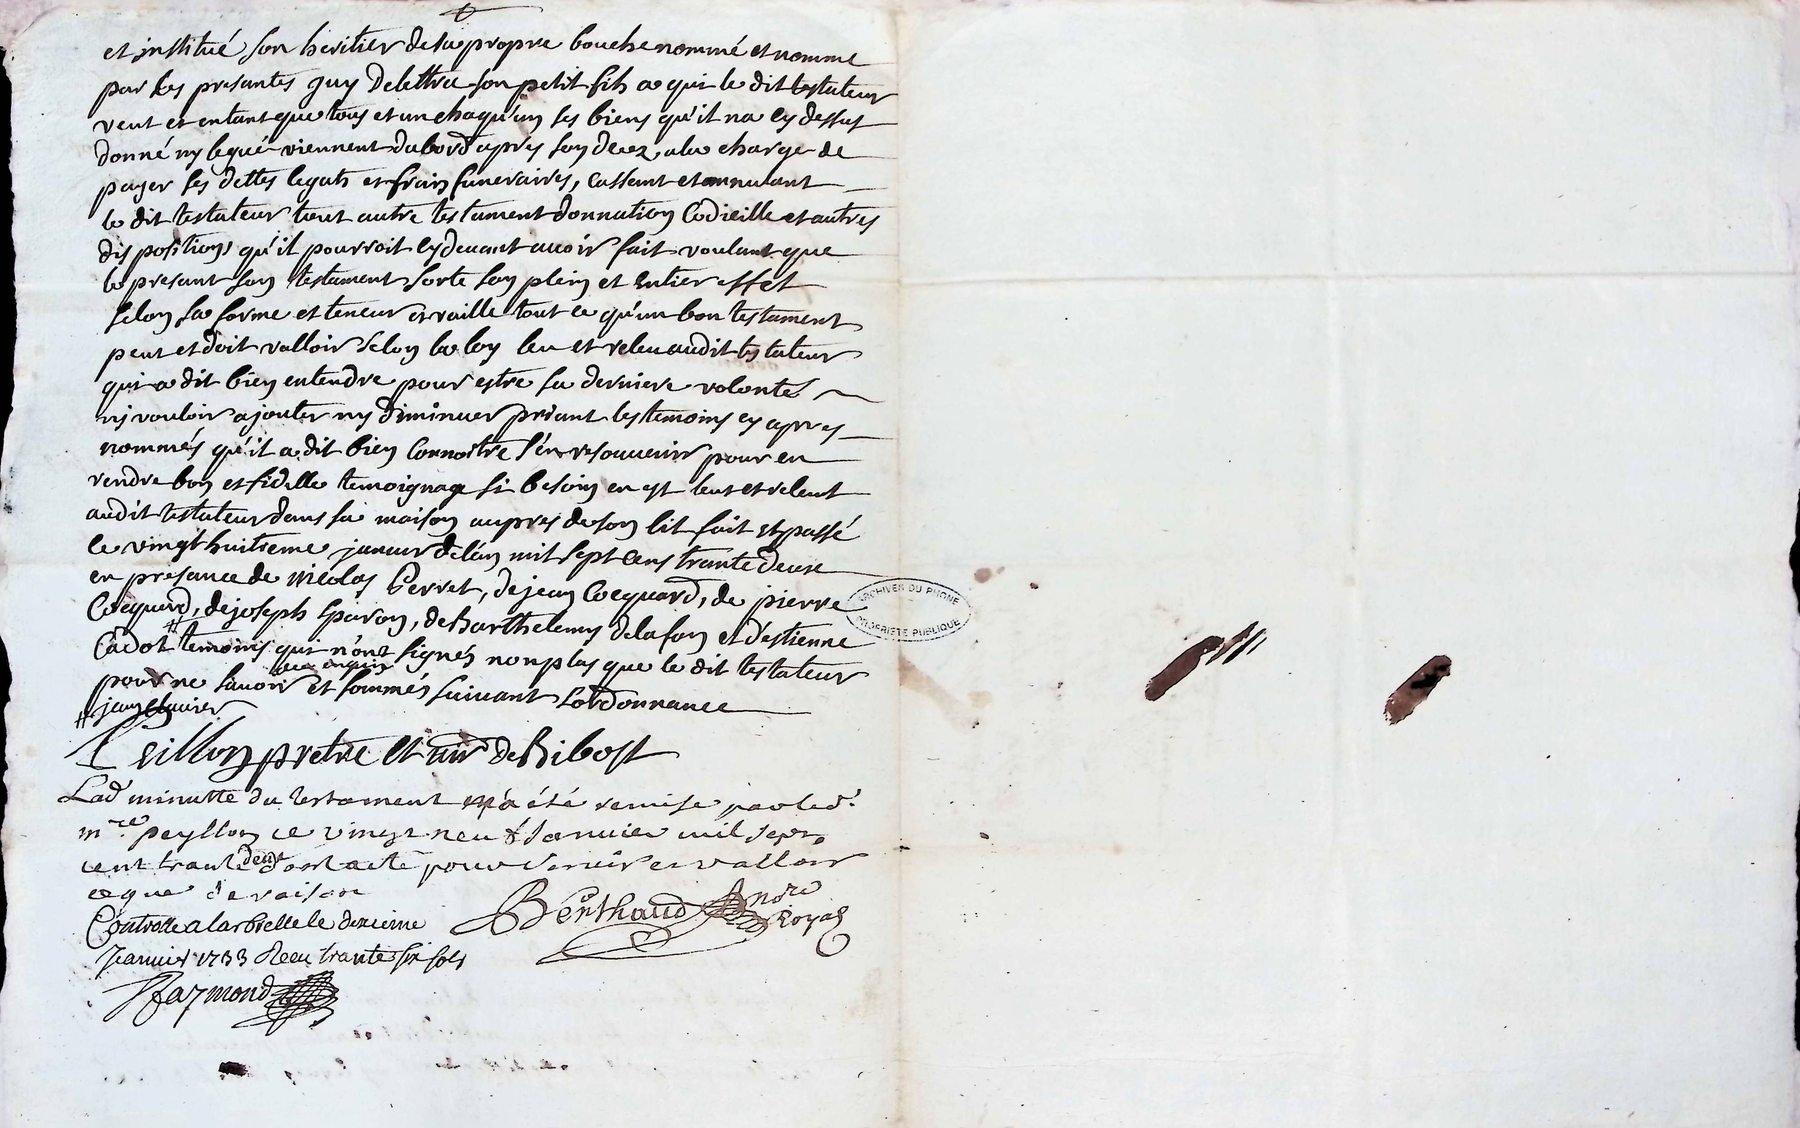 et institué son heritier de sa propre bouche nommé et nomme
par les presantes guy Delettra son petit fils a qui le dit testateur
veut et entant que tous et un chaqu'un ses biens qu'il na cy dessus
donné ny legué viennent dabord apres son decez, a la charge de
payer ses dettes legats et frais funeraires, cassant et annulant
le dit testateur tout autre testament donnation Codicille et autres
dispositions qu'il pourroit cydevant avoir fait voulant que
le presant son testament sorte son plein et entier effet
selon sa forme et teneur et vaille tout ce qu'un bon testament
peut et doit valloir selon la loy leu et releu audit testateur
qui a dit bien entendre pour estre sa derniere volonté
ny vouloir ajouter ny diminuer priant les temoins cy apres
nommés qu'il a dit bien Connoitre s'en resouvenir pour en
rendre bon et fidelle temoignage si besoin en est leut et releut
audit testateur dans sa maison aupres de son lit fait et passé
le vingt huitieme janvier de lan mil sept cens trante deux
en presance de nicolas Perret, de jean Cocquard, de pierre
Cocquard, de joseph Sparon, de Barthelemy delafon et d'estienne
Cadot # temoins qui n'ont signés non plus que le dit testateur
pour ne savoir et sommés suivant Lordonnance
# jean
Peillon pretre et vic de Bibost
Lad minutte du testament m'a été remise par led.
mre. peyllon ce vingt neuf Janvier mil sept
cent trante deux dont acte pour servir et valloir
ce que de raison
Berthaud nore
Royal
Controllé a larbrelle le deuxieme
Janvier 1733 Receu trante six sols
Raymond
ARCHIVES DU RHONE
PROPRIETE PUBLIQUE